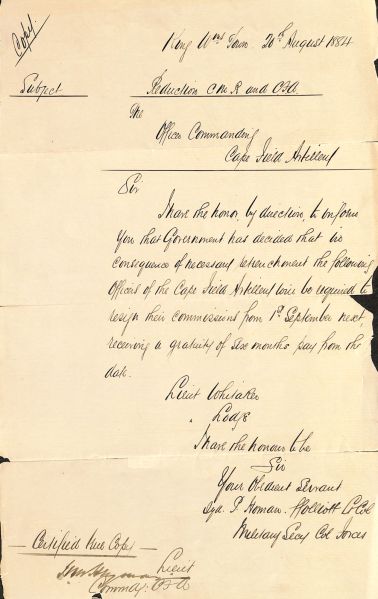 Copy
King Wms Town 20th August 1884
Subject
Reduction CMR and CFA
The
Officer Commanding
Cape Field Artillery
Sir
I have the honor, by direction, to inform
You that Government has decided that in
consequence of necessary retrenchment the following
Officers of the Cape Field Artillery will be required to
resign their commissions from 1st September next,
receiving a gratuity of six months pay from that
date.
Lieut Whitaker
" Lodge
I have the honour to be
Sir
Your Obedient Servant
Sgd. P. Homan ffolliott Lt Col
Military Secy Col Forces
Certified True Copy
Lieut
Commdg: CFA